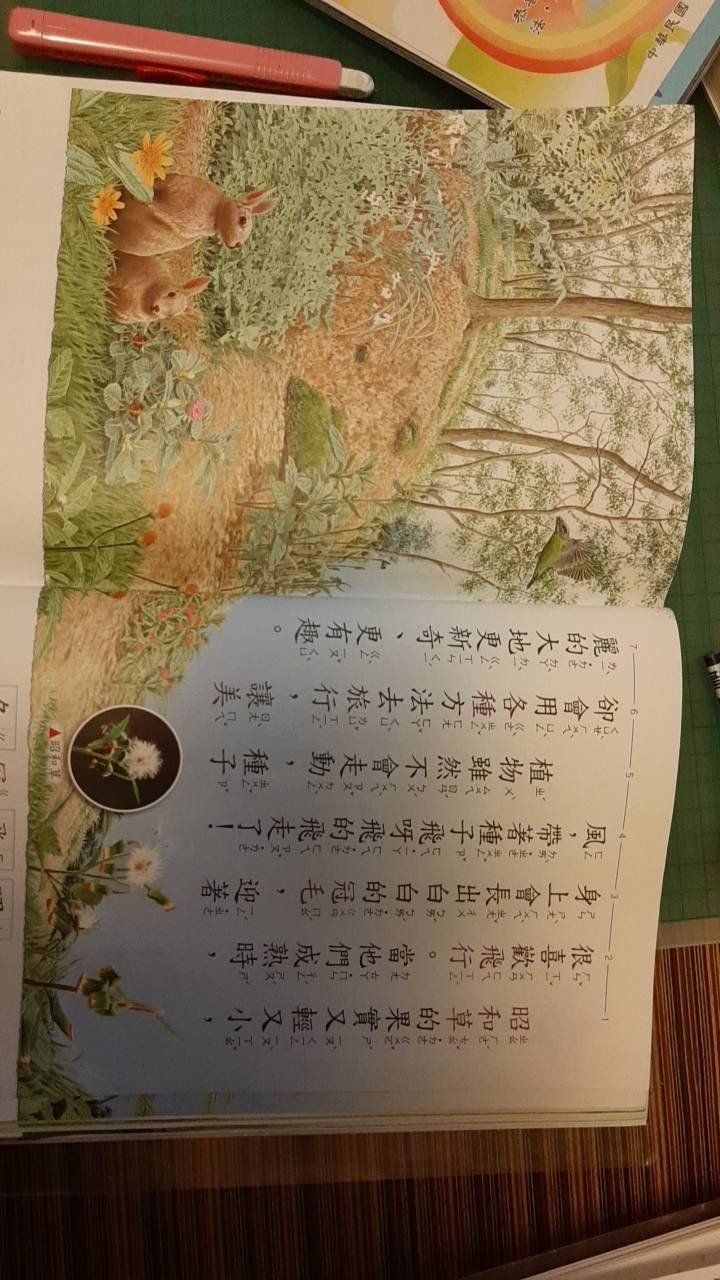 昭和草的果實又輕又小，
很喜歡飛行。當他們成熟時，
身上會長出白白的冠毛，迎著
風，帶著種子飛呀飛的飛走了！
植物雖然不會走動，種子
卻會用各種方法去旅行，讓美
麗的大地更新奇、更有趣。
1
2
3
4
5
6
7
▲昭和草
中華民國